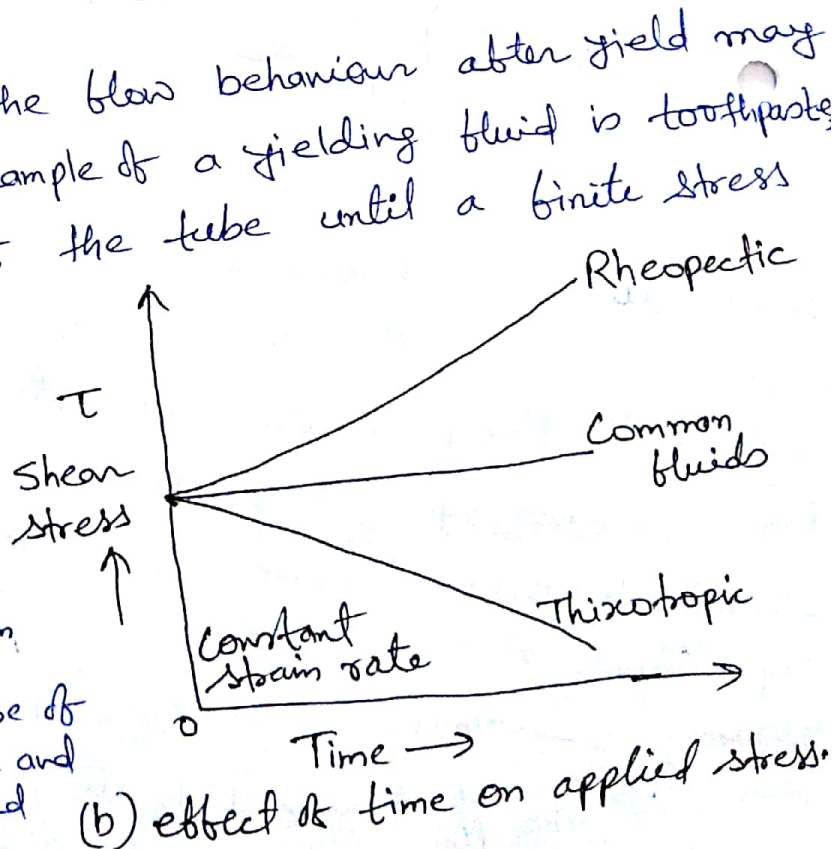 he flow behaviour after yield may
ample of a yielding fluid is toothpaste
the tube until a finite stress
Rheopectic
τ
Common
fluids
Shear
stress
Thixotropic
Constant
strain rate
n
be of
and
d
0
Time →
(b) effect of time on applied stress.